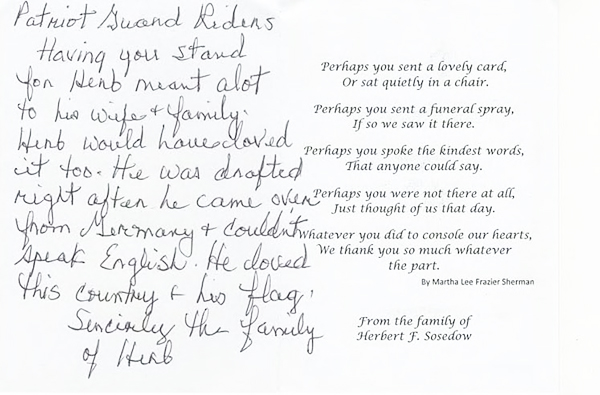 Patriot Guard Riders
Having you stand
for Herb meant alot
to his wife & family.
Herb would have loved
it too. He was drafted
right after he came over
from Germany & couldn't
speak English. He loved
this country & his flag.
Sincerly the family
of Herb
Perhaps you sent a lovely card,
Or sat quietly in a chair.
Perhaps you sent a funeral spray,
If so we saw it there.
Perhaps you spoke the kindest words,
That anyone could say.
Perhaps you were not there at all,
Just thought of us that day.
Whatever you did to console our hearts,
We thank you so much whatever
the part.
By Martha Lee Frazier Sherman
From the family of
Herbert F. Sosedow